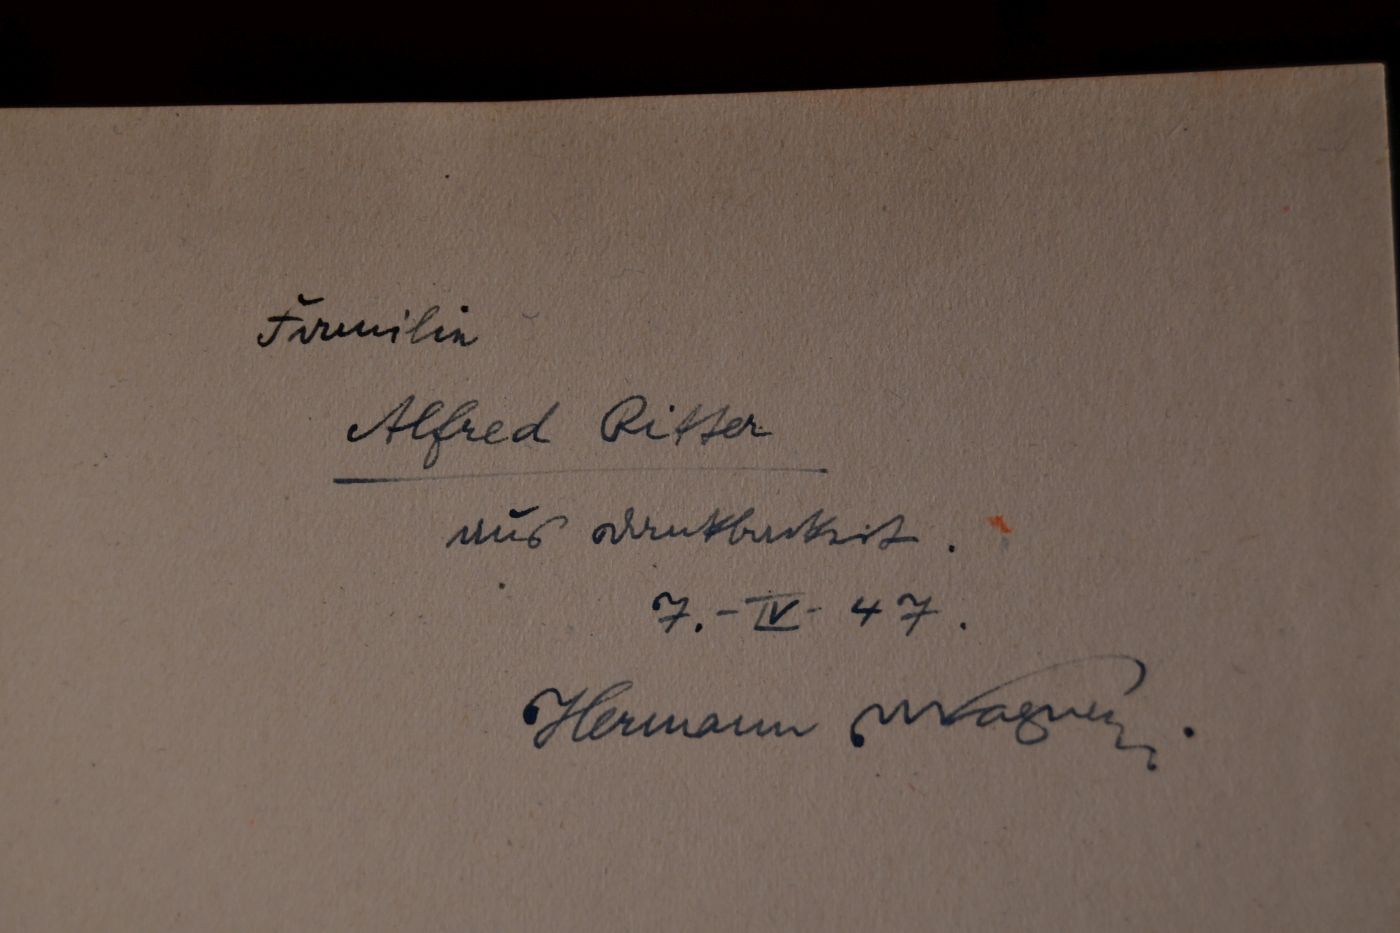 Familie
Alfred Ritter
aus Dankbarkeit.
7.-IV-47.
Hermann Wagner.